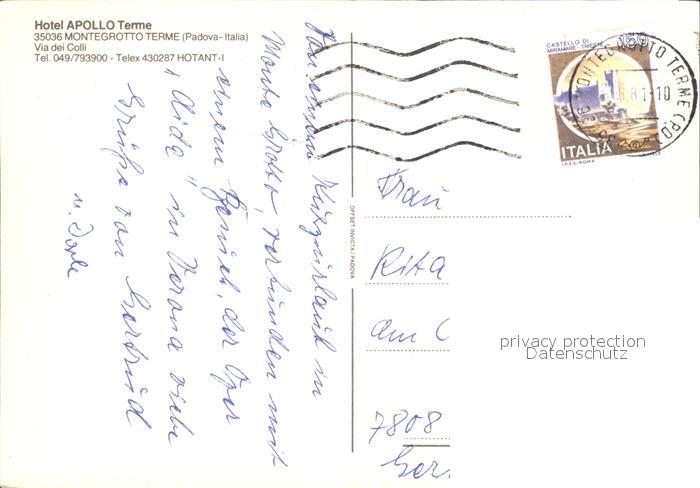 Hotel APOLLO Terme
35036 MONTEGROTTO TERME (Padova - Italia)
Via dei Colli
Tel. 049/793900 - Telex 430287 HOTANT-I
Kurzurlaub in
Monte Grotto, verbunden mit
einem der Oper
"Aida" in Verona viele
Grüße von Gertrud
u.
OFFSET INVICTA / PADOVA
CASTELLO DI
MIRAMARE - TRIESTE
ITALIA
I.P.Z.S.-ROMA
MONTEGROTTO TERME (PD)
Frau
Rita
am
7808
Ger.
privacy protection
Datenschutz